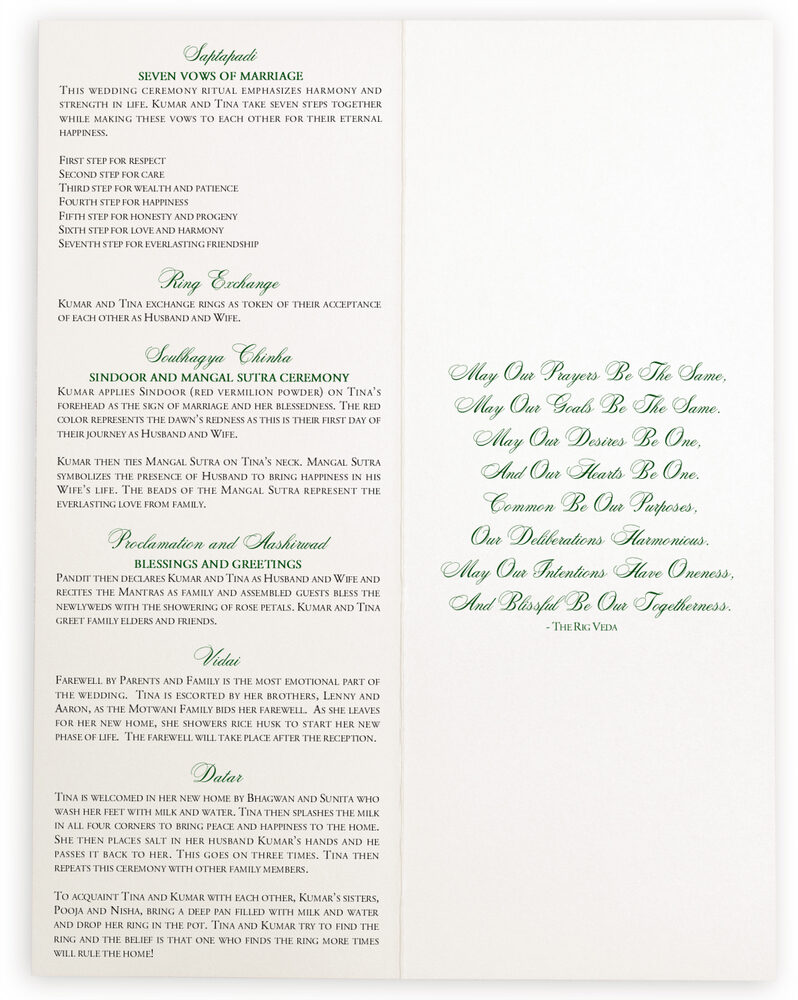 Saptapadi
SEVEN VOWS OF MARRIAGE
THIS WEDDING CEREMONY RITUAL EMPHASIZES HARMONY AND
STRENGTH IN LIFE. KUMAR AND TINA TAKE SEVEN STEPS TOGETHER
WHILE MAKING THESE VOWS TO EACH OTHER FOR THEIR ETERNAL
HAPPINESS.
FIRST STEP FOR RESPECT
SECOND STEP FOR CARE
THIRD STEP FOR WEALTH AND PATIENCE
FOURTH STEP FOR HAPPINESS
FIFTH STEP FOR HONESTY AND PROGENY
SIXTH STEP FOR LOVE AND HARMONY
SEVENTH STEP FOR EVERLASTING FRIENDSHIP
Ring Exchange
KUMAR AND TINA EXCHANGE RINGS AS TOKEN OF THEIR ACCEPTANCE
OF EACH OTHER AS HUSBAND AND WIFE.
Soulhagya Chinha
SINDOOR AND MANGAL SUTRA CEREMONY
KUMAR APPLIES SINDOOR (RED VERMILION POWDER) ON TINA'S
FOREHEAD AS THE SIGN OF MARRIAGE AND HER BLESSEDNESS. THE RED
COLOR REPRESENTS THE DAWN'S REDNESS AS THIS IS THEIR FIRST DAY OF
THEIR JOURNEY AS HUSBAND AND WIFE.
KUMAR THEN TIES MANGAL SUTRA ON TINA'S NECK. MANGAL SUTRA
SYMBOLIZES THE PRESENCE OF HUSBAND TO BRING HAPPINESS IN HIS
WIFE'S LIFE. THE BEADS OF THE MANGAL SUTRA REPRESENT THE
EVERLASTING LOVE FROM FAMILY.
Proclamation and Aashirwad
BLESSINGS AND GREETINGS
PANDIT THEN DECLARES KUMAR AND TINA AS HUSBAND AND WIFE AND
RECITES THE MANTRAS AS FAMILY AND ASSEMBLED GUESTS BLESS THE
NEWLYWEDS WITH THE SHOWERING OF ROSE PETALS. KUMAR AND TINA
GREET FAMILY ELDERS AND FRIENDS.
Vidai
FAREWELL BY PARENTS AND FAMILY IS THE MOST EMOTIONAL PART OF
THE WEDDING. TINA IS ESCORTED BY HER BROTHERS, LENNY AND
AARON, AS THE MOTWANI FAMILY BIDS HER FAREWELL. AS SHE LEAVES
FOR HER NEW HOME, SHE SHOWERS RICE HUSK TO START HER NEW
PHASE OF LIFE. THE FAREWELL WILL TAKE PLACE AFTER THE RECEPTION.
Datar
TINA IS WELCOMED IN HER NEW HOME BY BHAGWAN AND SUNITA WHO
WASH HER FEET WITH MILK AND WATER. TINA THEN SPLASHES THE MILK
IN ALL FOUR CORNERS TO BRING PEACE AND HAPPINESS TO THE HOME.
SHE THEN PLACES SALT IN HER HUSBAND KUMAR'S HANDS AND HE
PASSES IT BACK TO HER. THIS GOES ON THREE TIMES. TINA THEN
REPEATS THIS CEREMONY WITH OTHER FAMILY MEMBERS.
TO ACQUAINT TINA AND KUMAR WITH EACH OTHER, KUMAR'S SISTERS,
POOJA AND NISHA, BRING A DEEP PAN FILLED WITH MILK AND WATER
AND DROP HER RING IN THE POT. TINA AND KUMAR TRY TO FIND THE
RING AND THE BELIEF IS THAT ONE WHO FINDS THE RING MORE TIMES
WILL RULE THE HOME!
May Our Prayers Be The Same,
May Our Goals Be The Same.
May Our Desires Be One,
And Our Hearts Be One.
Common Be Our Purposes,
Our Deliberations Harmonious.
May Our Intentions Have Oneness,
And Blissful Be Our Togetherness.
- THE RIG VEDA